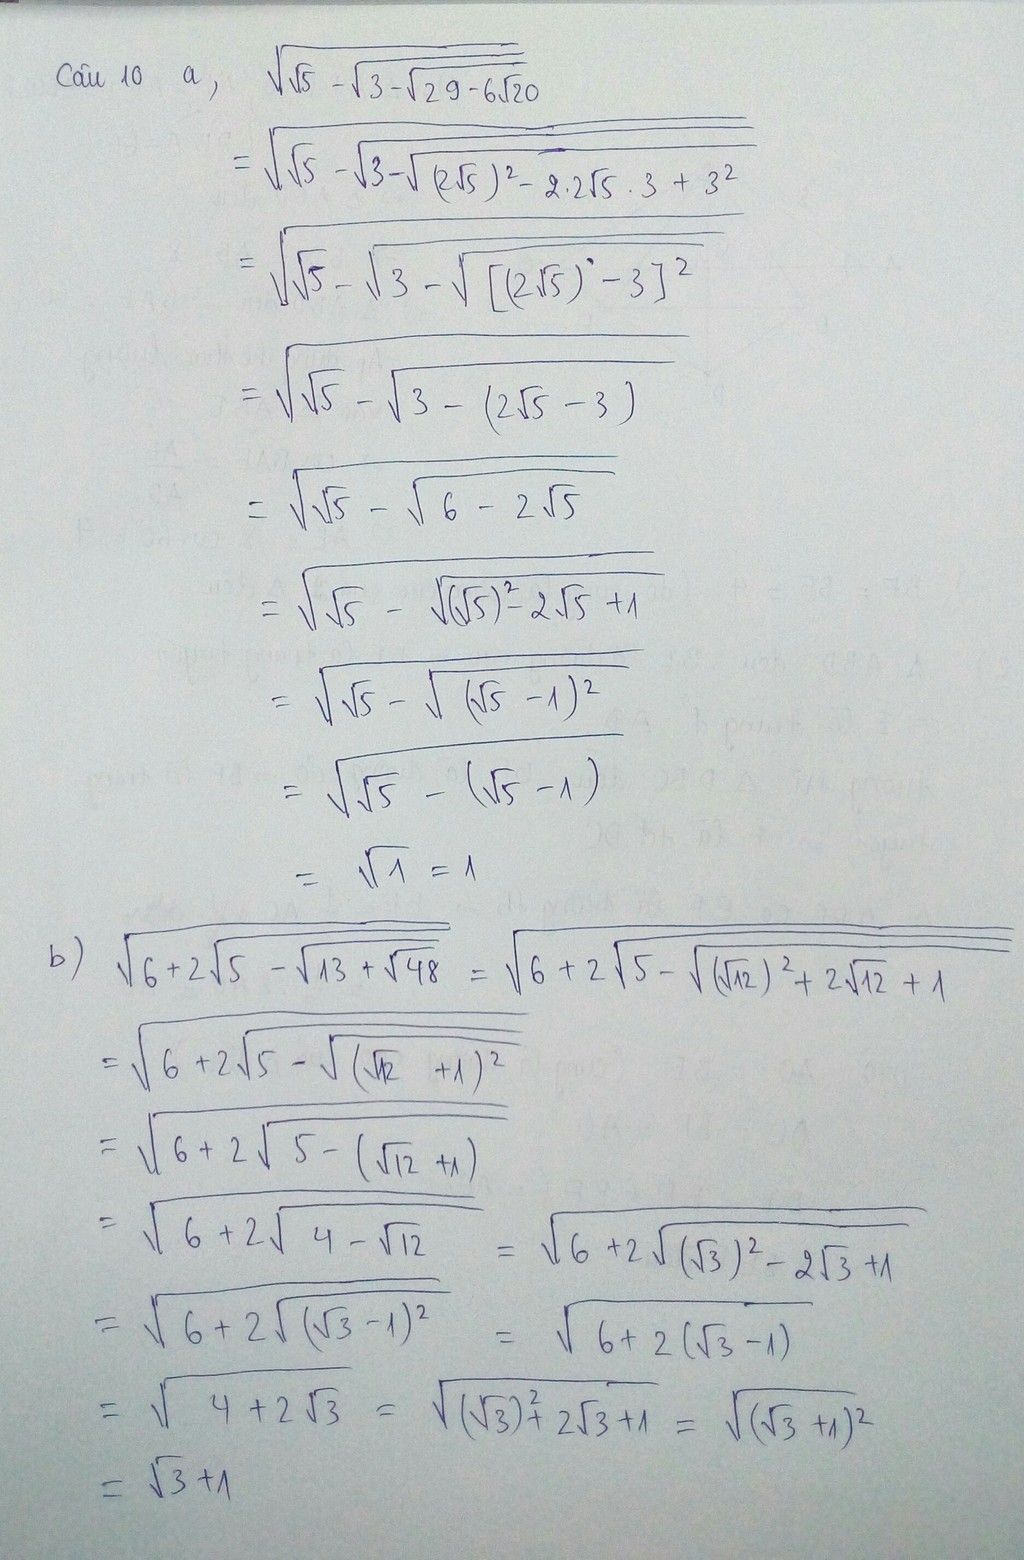 Câu 10 a, √(√5 - √(3 - √(29 - 6√20)))
= √(√5 - √(3 - √((2√5)² - 2.2√5.3 + 3²)))
= √(√5 - √(3 - √([(2√5) - 3]²)))
= √(√5 - √(3 - (2√5 - 3)))
= √(√5 - √(6 - 2√5))
= √(√5 - √((√5)² - 2√5 + 1))
= √(√5 - √((√5 - 1)²))
= √(√5 - (√5 - 1))
= √1 = 1
b) √(6 + 2√(5 - √(13 + √48))) = √(6 + 2√(5 - √((√12)² + 2√12 + 1)))
= √(6 + 2√(5 - √((√12 + 1)²)))
= √(6 + 2√(5 - (√12 + 1)))
= √(6 + 2√(4 - √12)) = √(6 + 2√((√3)² - 2√3 + 1))
= √(6 + 2√((√3 - 1)²)) = √(6 + 2(√3 - 1))
= √(4 + 2√3) = √((√3)² + 2√3 + 1) = √((√3 + 1)²)
= √3 + 1